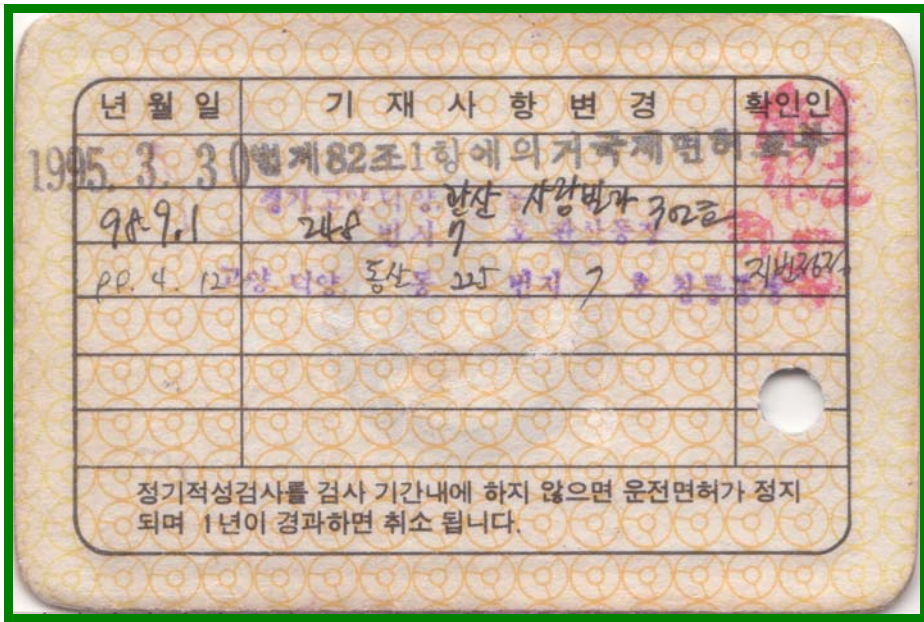 년 월 일 기 재 사 항 변 경 확인인
1995. 3. 30 법제82조1항에의거국제면허교부
98. 9. 1 경기고양덕양 관산 사랑빌라 302호
248 번지 7 호
99. 4. 12 고양 덕양 동산동 225 번지 7 호 지번정리
정기적성검사를 검사 기간내에 하지 않으면 운전면허가 정지
되며 1년이 경과하면 취소 됩니다.